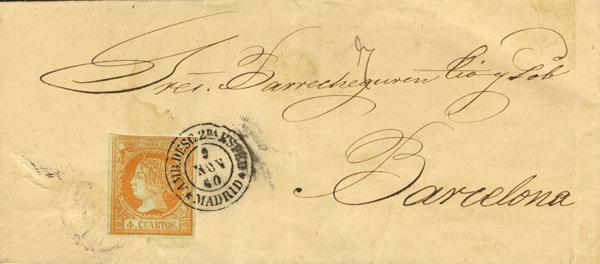 Sres. Barrecheguren Tio y Sob
Barcelona
CORREOS
4 CUARTOS.
AMB. DESC. 2DA ESPED.
9
NOV
60
MADRID